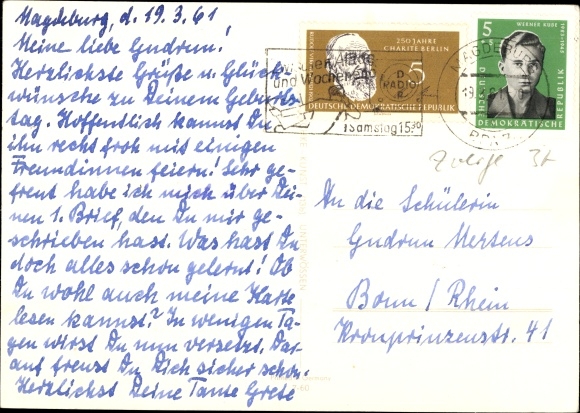 Magdeburg, d. 19.3.61
Meine liebe Gudrun!
Herzlichste Grüße u. Glück-
wünsche zu Deinem Geburts-
tag. Hoffentlich kannst Du
ihn recht froh mit einigen
Freundinnen feiern! Sehr ge-
freut habe ich mich über Dei-
nen 1. Brief, den Du mir ge-
schrieben hast. Was hast Du
doch alles schon gelernt! Ob
Du wohl auch meine Karte
lesen kannst? In wenigen Ta-
gen wirst Du nun versetzt. Dar-
auf freust Du Dich sicher schon.
Herzlichst Deine Tante Grete
250 JAHRE
CHARITÉ BERLIN
5
DEUTSCHE DEMOKRATISCHE REPUBLIK
und Wochen
RADIO
Samstag 15 30
MAGDEB
19.3.61
5
WERNER KUBE
DEUTSCHE
DEMOKRATISCHE
REPUBLIK
An die Schülerin
Gudrun Mertens
Bonn / Rhein
Kronprinzenstr. 41